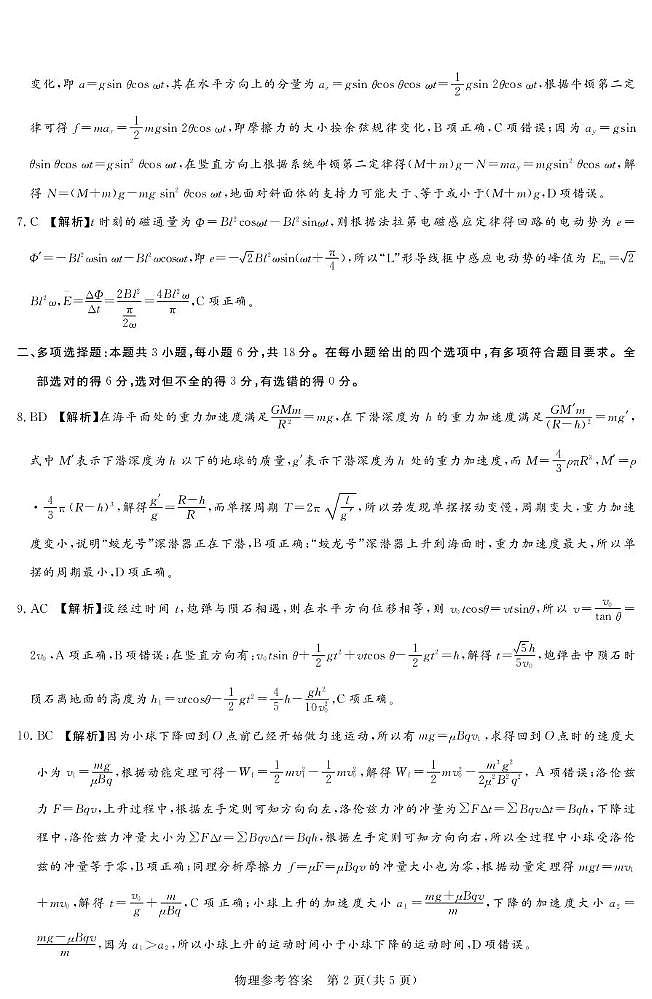 变化,即 a=gsin θcos ωt,其在水平方向上的分量为 aₓ=gsin θcos θcos ωt=1/2 gsin 2θcos ωt,根据牛顿第二定
律可得 f=maₓ=1/2 mgsin 2θcos ωt,即摩擦力的大小按余弦规律变化,B 项正确,C 项错误;因为 a_y=gsin
θsin θcos ωt=gsin² θcos ωt,在竖直方向上根据系统牛顿第二定律得(M+m)g-N=ma_y=mgsin² θcos ωt,解
得 N=(M+m)g-mg sin² θcos ωt,地面对斜面体的支持力可能大于、等于或小于(M+m)g,D 项错误。
7. C 【解析】t 时刻的磁通量为 Φ=Bl² cosωt-Bl² sinωt,则根据法拉第电磁感应定律得回路的电动势为 e=
Φ′=-Bl² ωsin ωt-Bl² ωcosωt,即 e=-√2Bl² ωsin(ωt+π/4),所以“L”形导线框中感应电动势的峰值为 Eₘ=√2
Bl² ω,E̅=ΔΦ/Δt=2Bl²/(π/2ω)=4Bl² ω/π,C 项正确。
二、多项选择题:本题共 3 小题,每小题 6 分,共 18 分。在每小题给出的四个选项中,有多项符合题目要求。全
部选对的得 6 分,选对但不全的得 3 分,有选错的得 0 分。
8. BD 【解析】在海平面处的重力加速度满足 GMm/R²=mg,在下潜深度为 h 的重力加速度满足 GM′m/(R-h)²=mg′,
式中 M′表示下潜深度为 h 以下的地球的质量,g′表示下潜深度为 h 处的重力加速度,而 M=4/3 ρπR³,M′=ρ
·4/3 π(R-h)³,解得 g′/g=(R-h)/R,而单摆周期 T=2π√(l/g′),所以若发现单摆摆动变慢,周期变大,重力加速
度变小,说明“蛟龙号”深潜器正在下潜,B 项正确;“蛟龙号”深潜器上升到海面时,重力加速度最大,所以单
摆的周期最小,D 项正确。
9. AC 【解析】设经过时间 t,炮弹与陨石相遇,则在水平方向位移相等,则 v₀tcosθ=vtsinθ,所以 v=v₀/tan θ=
2v₀,A 项正确,B 项错误;在竖直方向有:v₀tsin θ+1/2 gt²+vtcos θ-1/2 gt²=h,解得 t=√5h/5v₀,炮弹击中陨石时
陨石离地面的高度为 h₁=vtcosθ-1/2 gt²=4/5 h-gh²/10v₀²,C 项正确。
10. BC 【解析】因为小球下降回到 O 点前已经开始做匀速运动,所以有 mg=μBqv₁,求得回到 O 点时的速度大
小为 v₁=mg/μBq,根据动能定理可得-W_f=1/2 mv₁²-1/2 mv₀²,解得 W_f=1/2 mv₀²-m³g²/2μ²B²q²,A 项错误;洛伦兹
力 F=Bqv,上升过程中,根据左手定则可知方向向左,洛伦兹力冲的冲量为∑FΔt=∑BqvΔt=Bqh,下降过
程中,洛伦兹力冲量大小为∑FΔt=∑BqvΔt=Bqh,根据左手定则可知方向向右,所以全过程中小球受洛伦
兹的冲量等于零,B 项正确;同理分析摩擦力 f=μF=μBqv 的冲量大小也为零,根据动量定理得 mgt=mv₁
+mv₀,解得 t=v₀/g+m/μBq,C 项正确;小球上升的加速度大小 a₁=(mg+μBqv)/m,下降的加速度大小 a₂=
(mg-μBqv)/m,因为 a₁>a₂,所以小球上升的运动时间小于小球下降的运动时间,D 项错误。
物理参考答案 第 2 页(共 5 页)